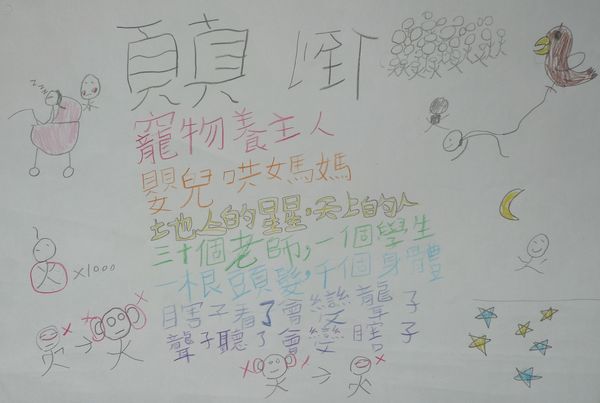 顛倒
zzz
寵物養主人
嬰兒哄媽媽
地人的星星,天上的人
三十個老師,一個學生
一根頭髮,千個身體
x1000
瞎子看了會變聾子
聾子聽了會變瞎子